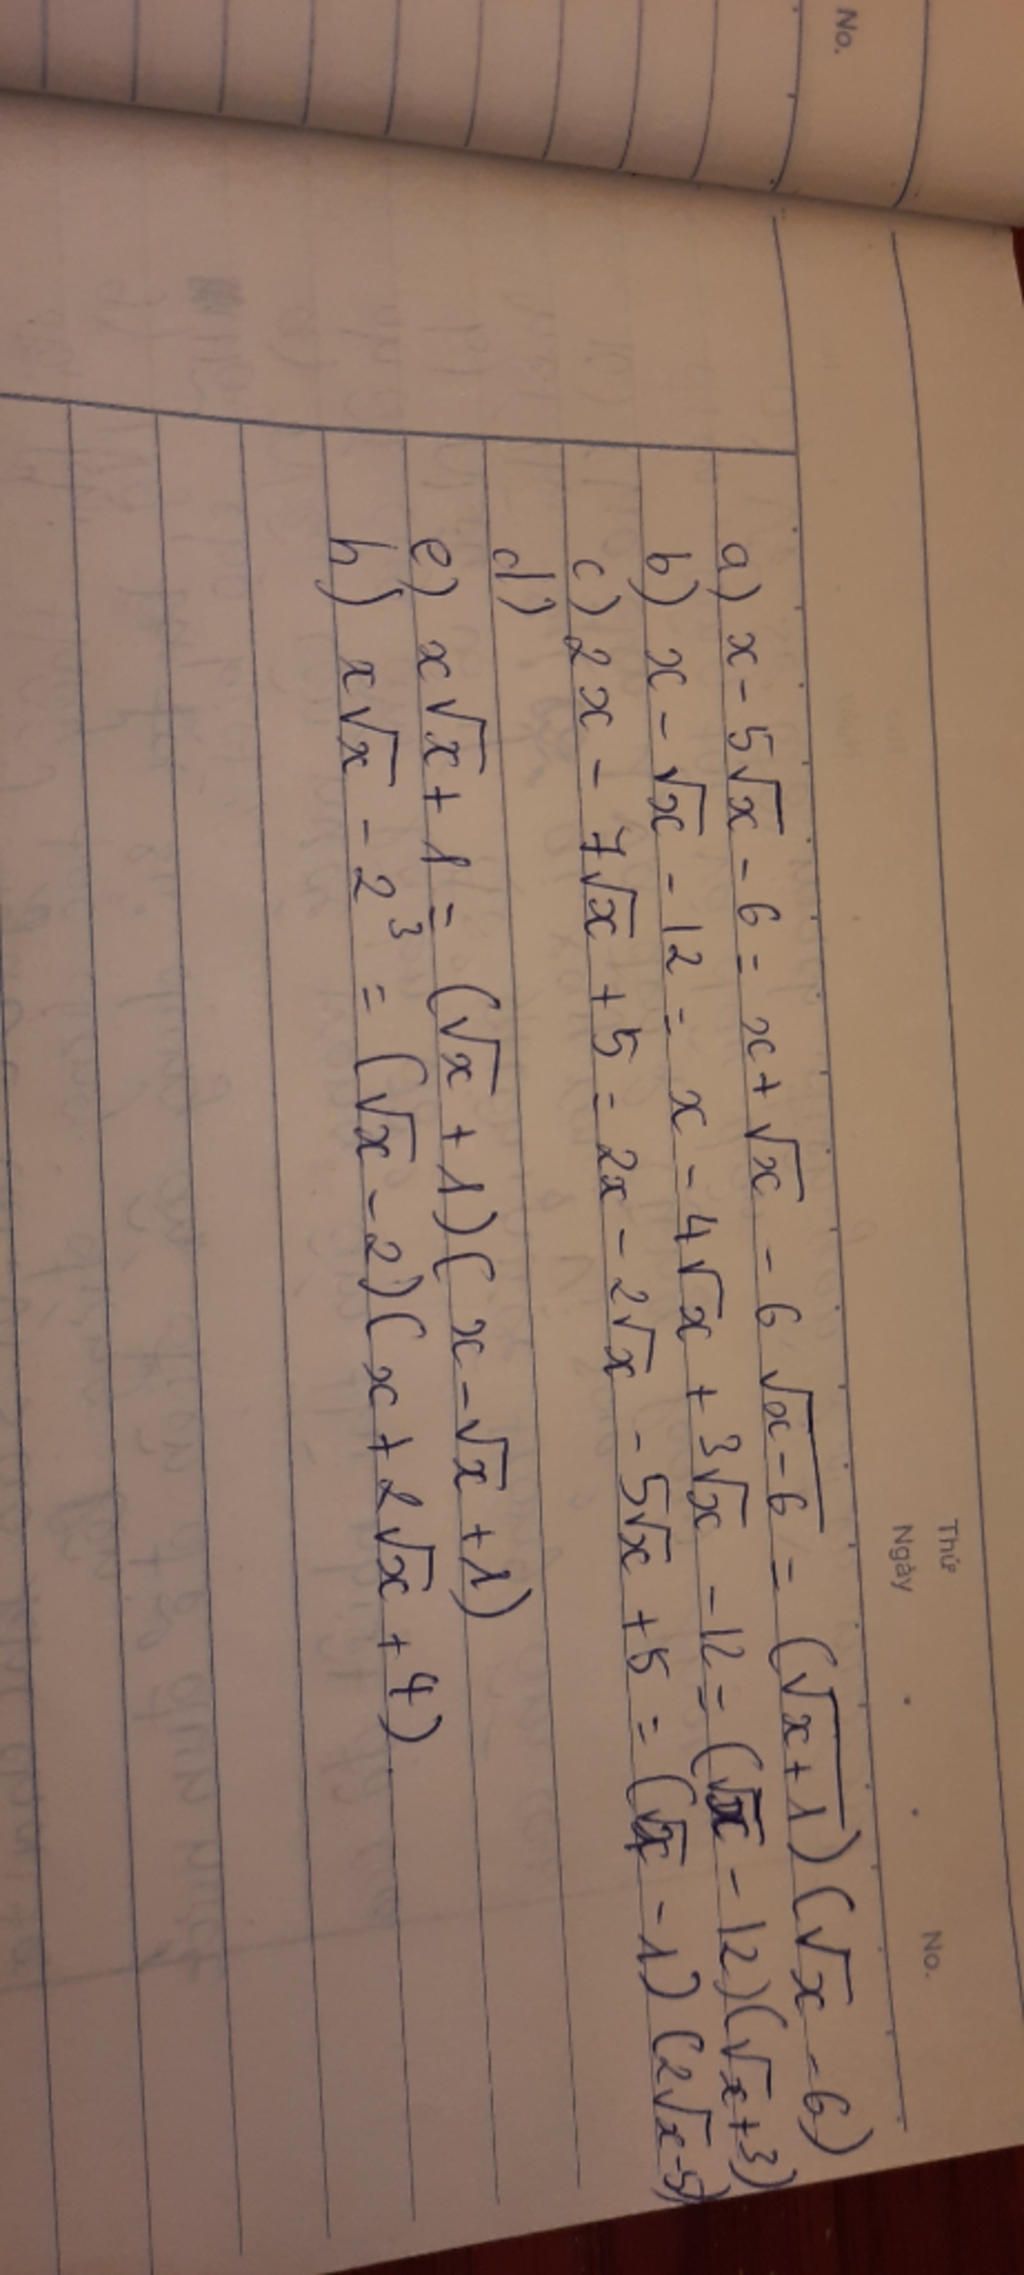 No.
Thứ
Ngày
No.
a) x - 5√x - 6 = x + √x - 6 √(x - 6) = (√(x + 1)) (√x - 6)
b) x - √x - 12 = x - 4√x + 3√x - 12 = (√x - 12) (√x + 3)
c) 2x - 7√x + 5 = 2x - 2√x - 5√x + 5 = (√x - 1) (2√x - 5)
d)
e) x√x + 1 = (√x + 1) (x - √x + 1)
h) x√x - 2³ = (√x - 2) (x + 2√x + 4)